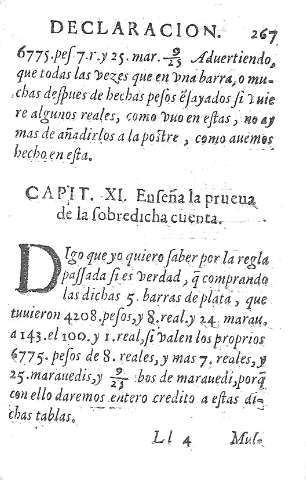 DECLARACION. 267
6775. pes 7. r. y 25. mar. 9/23 Aduertiendo,
que todas las vezes que en vna barra, o mu-
chas despues de hechas pesos ẽsayados si vuie
re algunos reales, como vuo en estas, no ay
mas de añadirlos a la postre, como auemos
hecho en esta.
CAPIT. XI. Enseña la prueua
de la sobredicha cuenta.
Digo que yo quiero saber por la regla
passada si es verdad, q̃ comprando
las dichas 5. barras de plata, que
tuuieron 4208. pesos, y 8. real. y 24. marau.
a 143. el 100. y 1. real, si valen los proprios
6775. pesos de 8. reales, y mas 7. reales, y
25. marauedis, y 9/23 bos de marauedi, porq̃
con ello daremos entero credito a estas di-
chas tablas.
Ll 4 Mul-